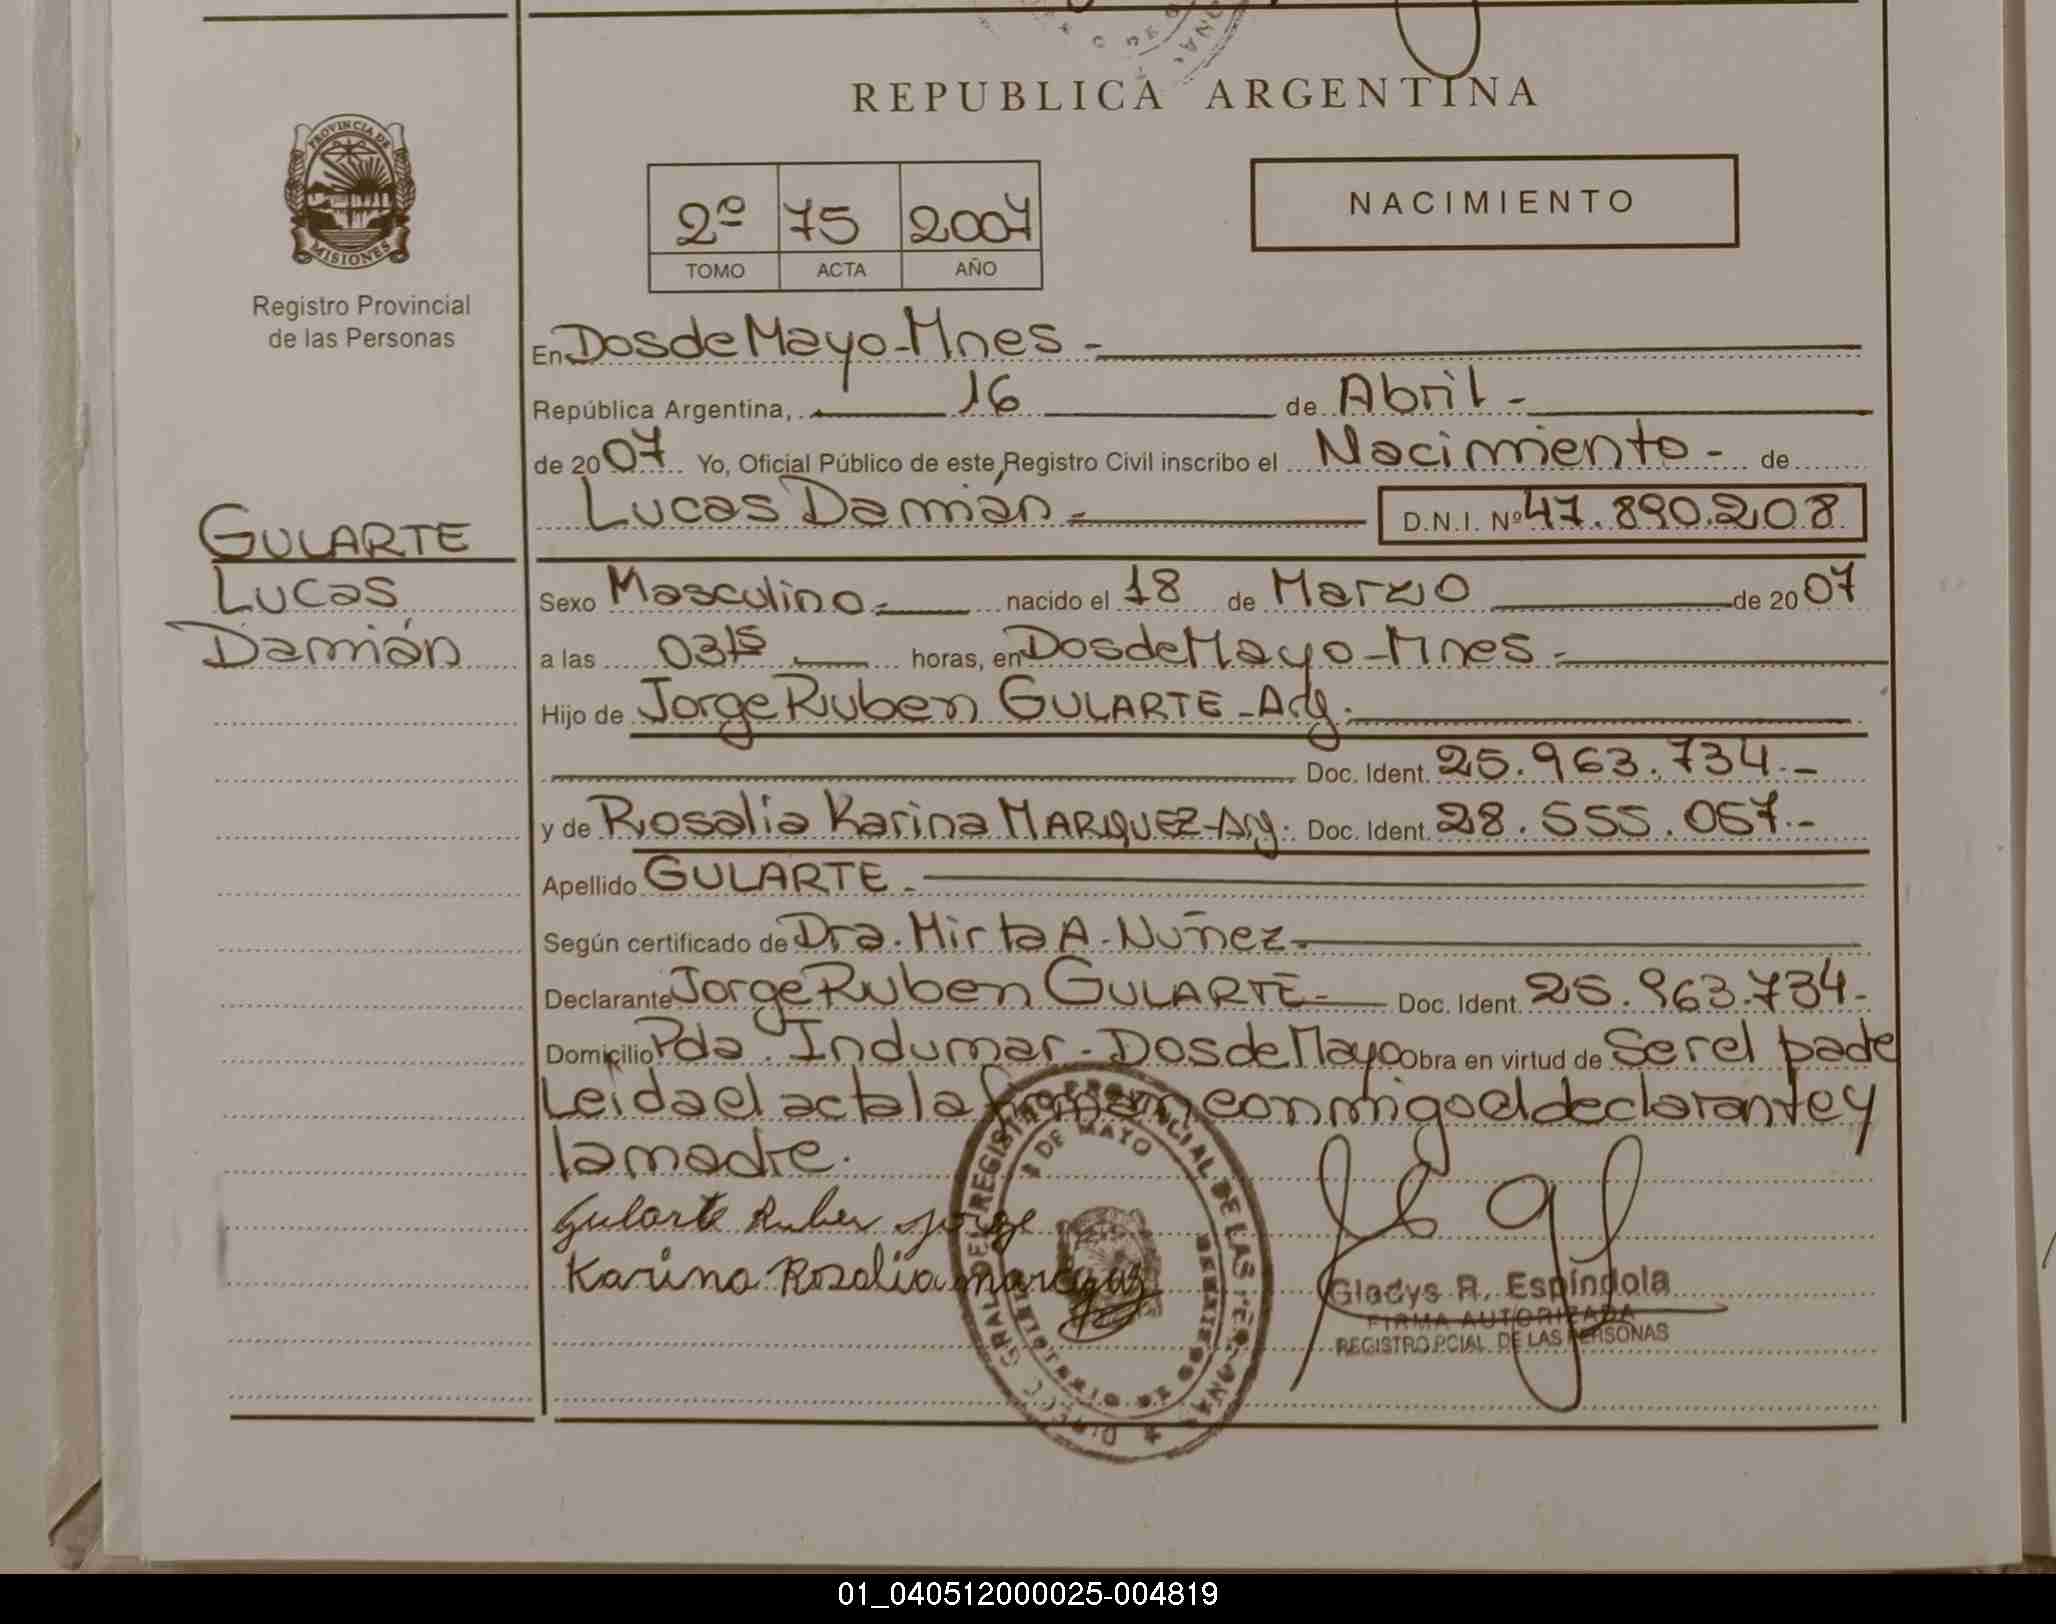 REPUBLICA ARGENTINA
PROVINCIA DE
MISIONES
Registro Provincial
de las Personas
2º 75 2007
TOMO ACTA AÑO
NACIMIENTO
En Dos de Mayo - Mnes -
República Argentina, 16 de Abril -
de 2007 Yo, Oficial Público de este Registro Civil inscribo el Nacimiento - de
Lucas Damián - D.N.I. Nº 47.890.208
GULARTE
Lucas
Damián
Sexo Masculino - nacido el 18 de Marzo de 2007
a las 03 15 horas, en Dos de Mayo - Mnes -
Hijo de Jorge Ruben GULARTE - Arg.
Doc. Ident. 25.963.734.-
y de Rosalia Karina MARQUEZ - Arg. Doc. Ident. 28.555.057.-
Apellido GULARTE -
Según certificado de Dra. Mirta A. Nuñez -
Declarante Jorge Ruben GULARTE - Doc. Ident. 25.963.734-
Domicilio Pda. Indumar - Dos de Mayo Obra en virtud de Ser el padre
Leida el acta la firman conmigo el declarante y
la madre.
Gularte Ruben Jorge
Karina Rosalia marquez
DIRECC. GRAL. DEL REGISTRO PROVINCIAL DE LAS PERSONAS
DE MAYO
MINISTERIO DE GOBIERNO
Gladys R. Espíndola
FIRMA AUTORIZADA
REGISTRO PCIAL. DE LAS PERSONAS
01_040512000025-004819